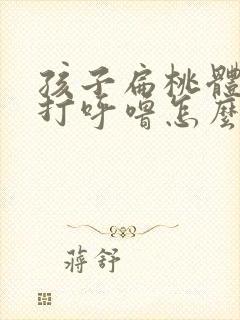 孩子扁桃體
打呼嚕怎麼
蔣舒